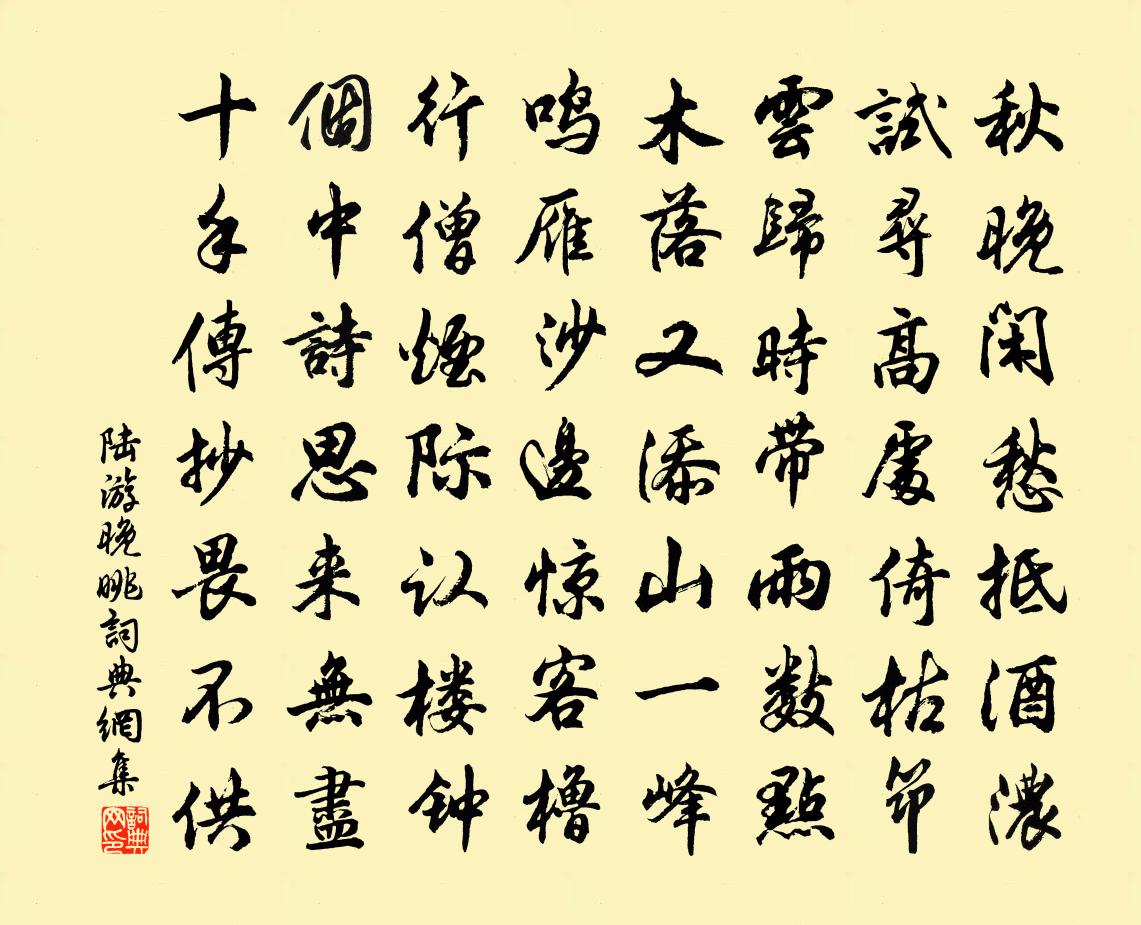 秋晚闲愁抵酒濃
試尋高處倚枯筇
雲歸時带雨数點
木落又添山一峰
鸣雁沙邊惊客櫓
行僧煙际认楼钟
個中詩思来無盡
十手傳抄畏不供
陆游晚眺詞典網集
詞典网印